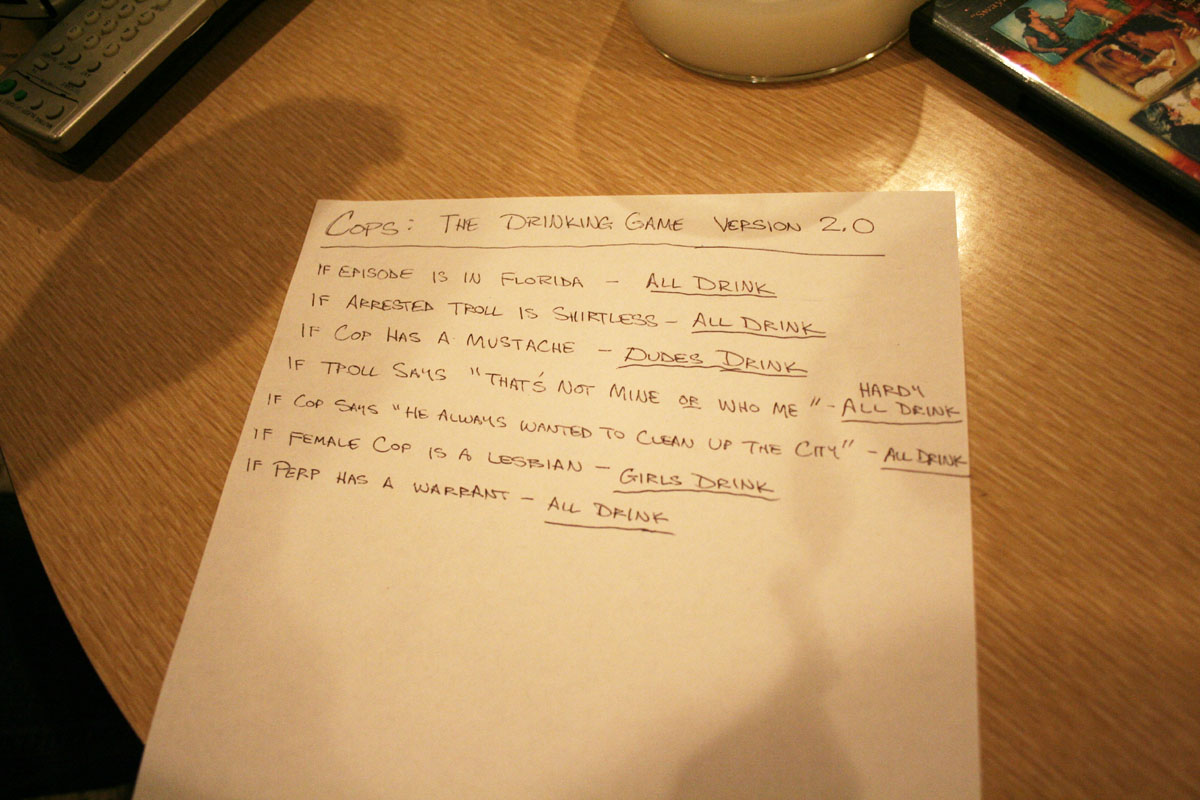 COPS: THE DRINKING GAME VERSION 2.0
IF EPISODE IS IN FLORIDA - ALL DRINK
IF ARRESTED TROLL IS SHIRTLESS - ALL DRINK
IF COP HAS A MUSTACHE - DUDES DRINK
HARDY
IF TROLL SAYS "THAT'S NOT MINE OR WHO ME" - ALL DRINK
IF COP SAYS "HE ALWAYS WANTED TO CLEAN UP THE CITY" - ALL DRINK
IF FEMALE COP IS A LESBIAN - GIRLS DRINK
IF PERP HAS A WARRANT - ALL DRINK